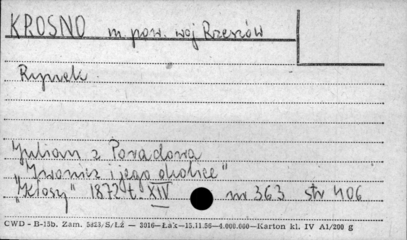 KROSNO m. pow. woj Rzeszów
Rynek
Julian z Poradowa
"Iwonicz i jego okolice"
"Kłosy" 1872 t. XIV nr 363 str 406
CWD - B-15b. Zam. 5823/S/Łż — 2016—Łak—15.11.56—4.000.000—Karton kl. IV A1/200 g